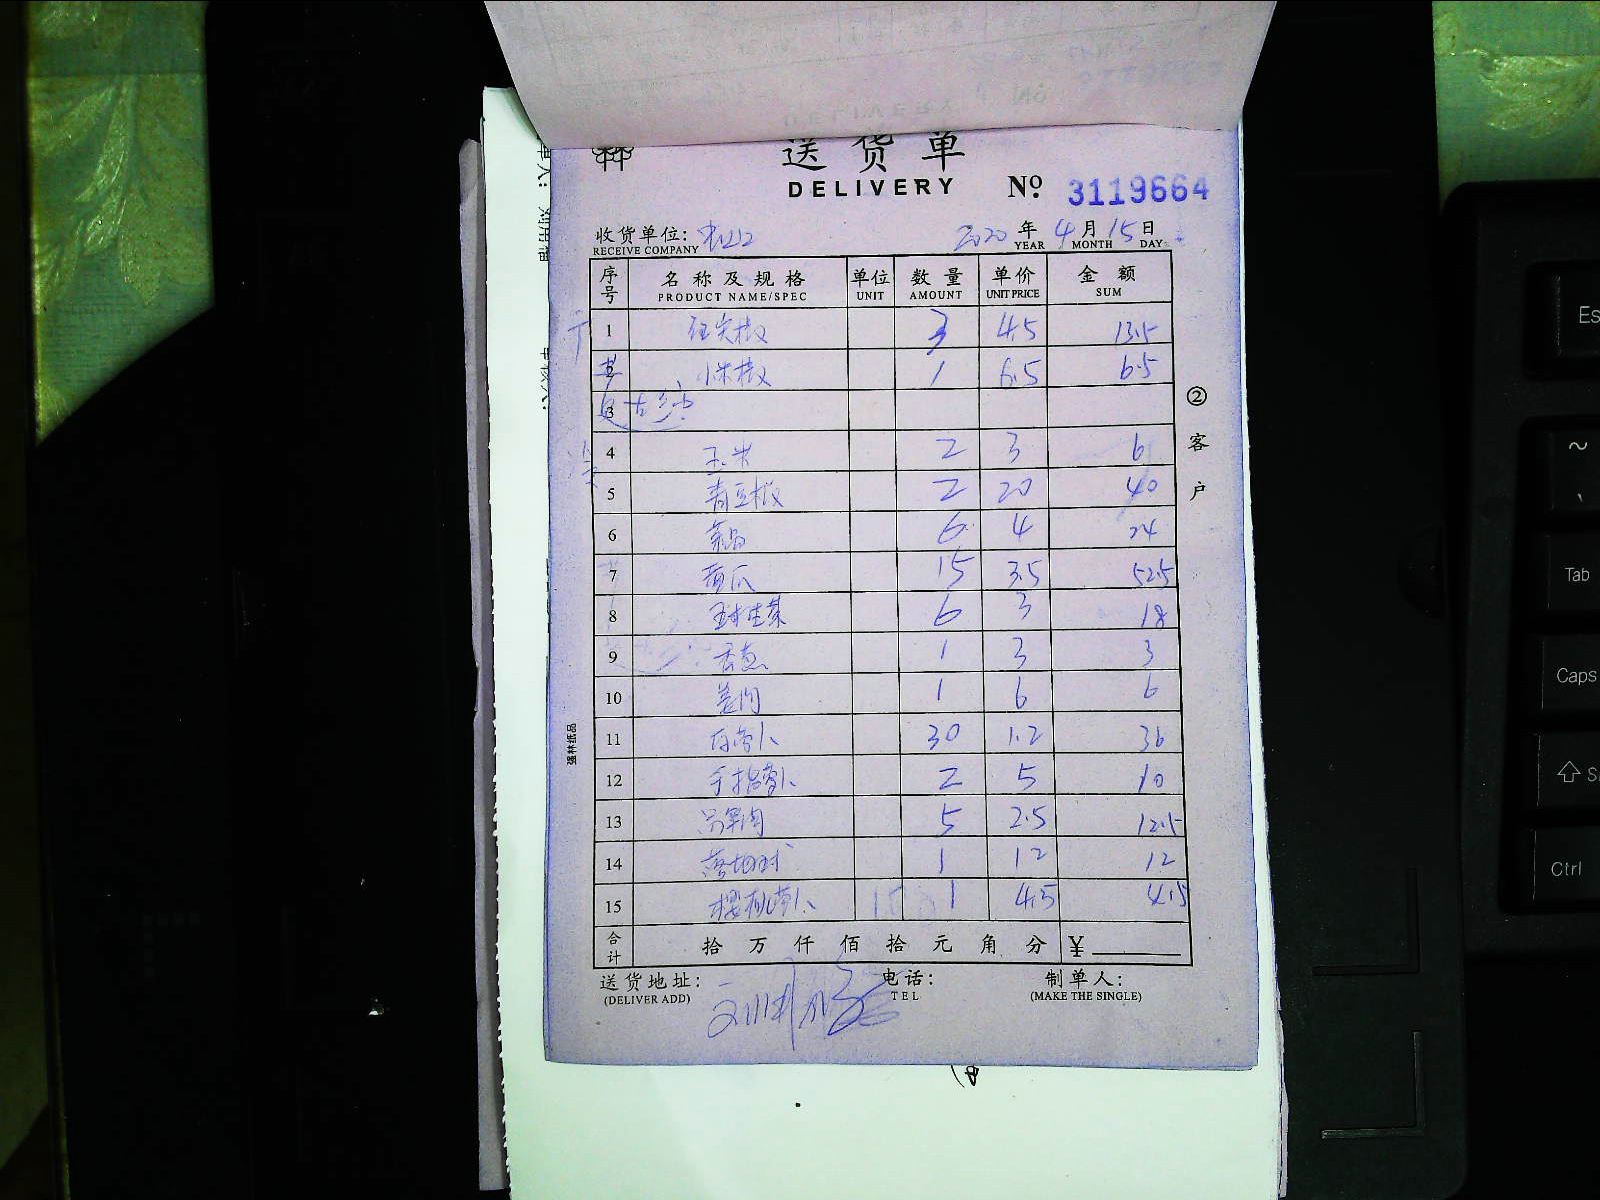 送货单
DELIVERY № 3119664
收货单位: 2020 年 4 月 15 日
RECEIVE COMPANY YEAR MONTH DAY
序号 名称及规格 单位 数量 单价 金额
PRODUCT NAME/SPEC UNIT AMOUNT UNIT PRICE SUM
1 红尖椒 3 4.5 13.5
2 小米椒 1 6.5 6.5
3
4 玉米 2 3 6
5 青豆椒 2 20 40
6 6 4 24
7 黄瓜 15 3.5 52.5
8 球生菜 6 3 18
9 香葱 1 3 3
10 姜肉 1 6 6
11 白萝卜 30 1.2 36
12 手指萝卜 2 5 10
13 5 2.5 12.5
14 1 12 12
15 樱桃萝卜 1 4.5 4.5
合计 拾 万 仟 佰 拾 元 角 分 ¥
送货地址: 电话: 制单人:
(DELIVER ADD) TEL (MAKE THE SINGLE)
②客户
强林纸品
Tab
Caps
Ctrl